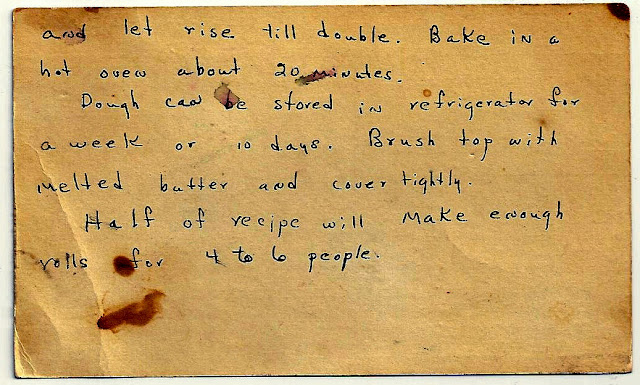 and let rise till double. Bake in a
hot oven about 20 minutes.
Dough can be stored in refrigerator for
a week or 10 days. Brush top with
melted butter and cover tightly.
Half of recipe will make enough
rolls for 4 to 6 people.